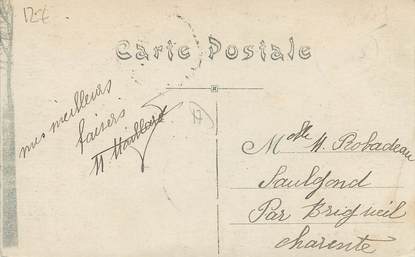 127
Carte Postale
mes meilleurs
baisers
M Maillard
Melle M. Robadeau
Saulgond
Par Brigueil
Charente